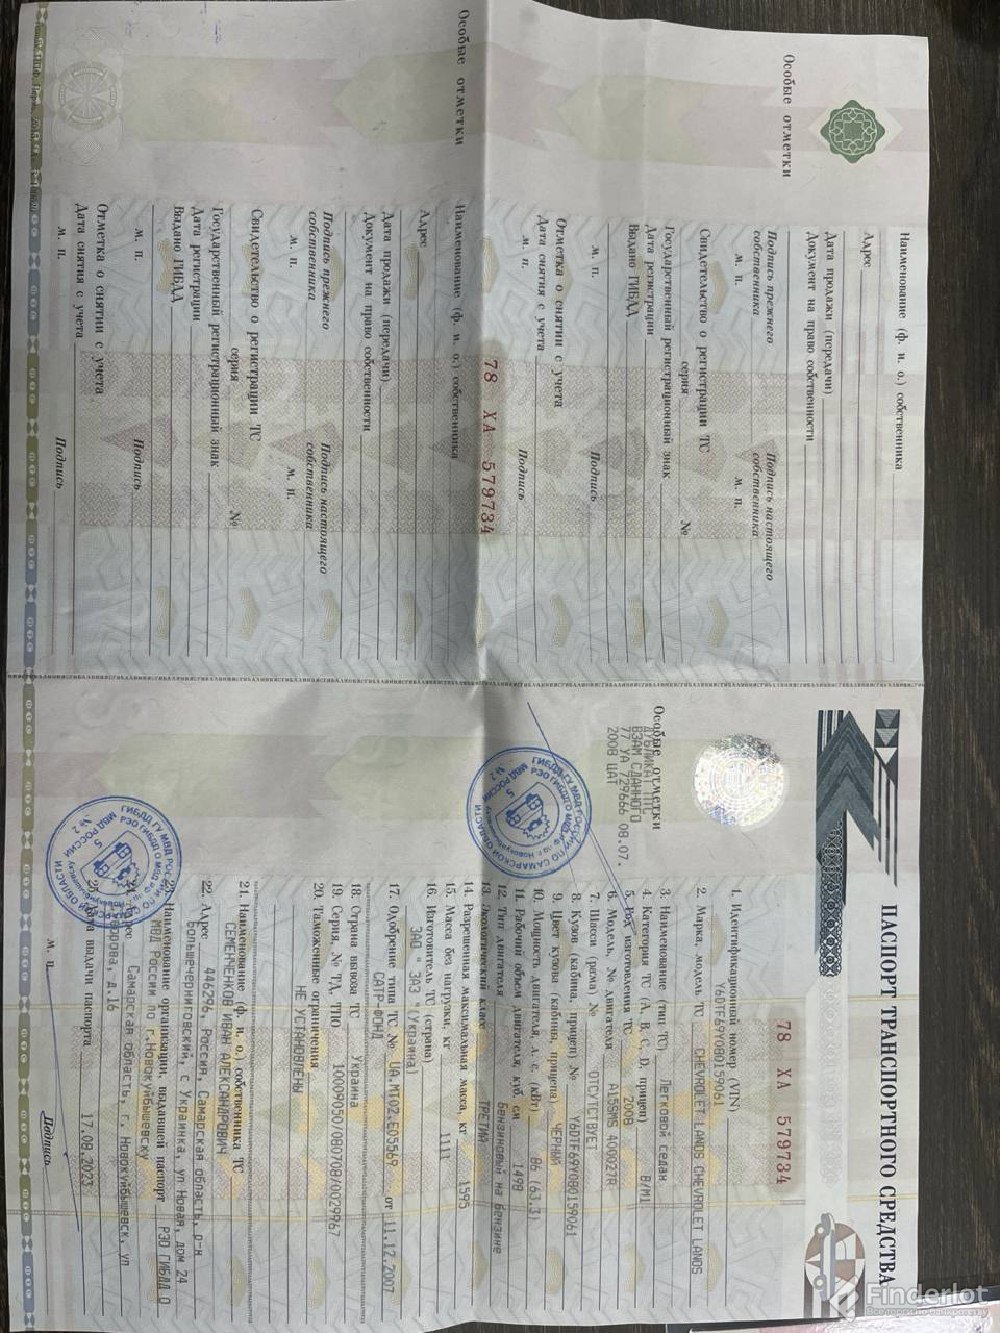 ПАСПОРТ ТРАНСПОРТНОГО СРЕДСТВА
78 ХА 579734
1. Идентификационный номер (VIN)
Y6DTF69Y080159061
2. Марка, модель ТС CHEVROLET LANOS CHEVROLET LANOS
3. Наименование (тип ТС) Легковой седан
4. Категория ТС (А, В, С, D, прицеп) В/М1
5. Год изготовления ТС 2008
6. Модель, № двигателя A15SMS 400027R
7. Шасси (рама) № ОТСУТСТВУЕТ
8. Кузов (кабина, прицеп) № Y6DTF69Y080159061
9. Цвет кузова (кабины, прицепа) ЧЕРНЫЙ
10. Мощность двигателя, л. с. (кВт) 86 (63.3)
11. Рабочий объем двигателя, куб. см 1498
12. Тип двигателя Бензиновый на бензине
13. Экологический класс ТРЕТИЙ
14. Разрешенная максимальная масса, кг 1595
15. Масса без нагрузки, кг 1117
16. Изготовитель ТС (страна)
ЗАО "ЗАЗ (Украина)
17. Одобрение типа ТС № UA.MT02.E05569 от 11.12.2007
САТР-ФОНД
18. Страна вывоза ТС Украина
19. Серия, № ТД, ТПО 10009050/080708/0029967
20. Таможенные ограничения
НЕ УСТАНОВЛЕНЫ
21. Наименование (ф. и. о.) собственника ТС
СЕМЕНЧЕНКОВ ИВАН АЛЕКСАНДРОВИЧ
22. Адрес 446296, Россия, Самарская область, р-н
Большечерниговский, с Украинка, ул Новая, дом 24
23. Наименование организации, выдавшей паспорт РЭО ГИБДД О
МВД России по г.Новокуйбышевску
24. Адрес Самарская область, г. Новокуйбышевск, ул
д.16
25. Дата выдачи паспорта 17.08.2023
М. П. Подпись
Особые отметки
ДУБЛИКАТ
ВЗАМ СДАННОГО
77 УА 729666 08.07.
2008 ЦАТ
Особые отметки
Наименование (ф. и. о.) собственника
Адрес
Дата продажи (передачи)
Документ на право собственности
Подпись прежнего собственника
Подпись настоящего собственника
м. п. м. п.
Свидетельство о регистрации ТС
серия №
Государственный регистрационный знак
Дата регистрации
Выдано ГИБДД
м. п. Подпись
Отметка о снятии с учета
Дата снятия с учета
м. п. Подпись
78 ХА 579734
Особые отметки
Наименование (ф. и. о.) собственника
Адрес
Дата продажи (передачи)
Документ на право собственности
Подпись прежнего собственника
Подпись настоящего собственника
м. п. м. п.
Свидетельство о регистрации ТС
серия №
Государственный регистрационный знак
Дата регистрации
Выдано ГИБДД
м. п. Подпись
Отметка о снятии с учета
Дата снятия с учета
м. п. Подпись
Finderlot